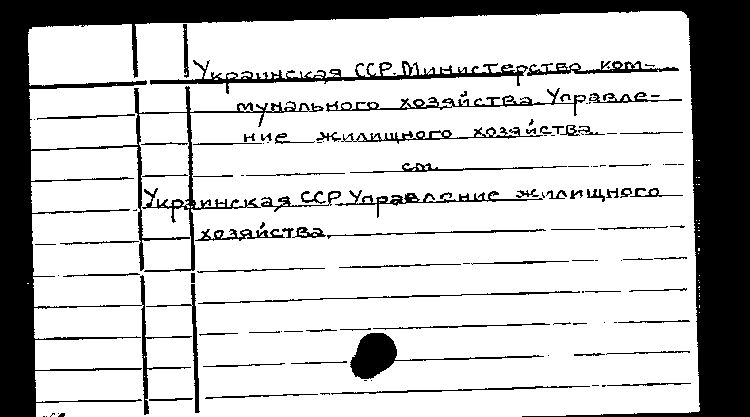 Украинская ССР. Министерство ком-
мунального хозяйства. Управле-
ние жилищного хозяйства.
см.
Украинская ССР. Управление жилищного
хозяйства.